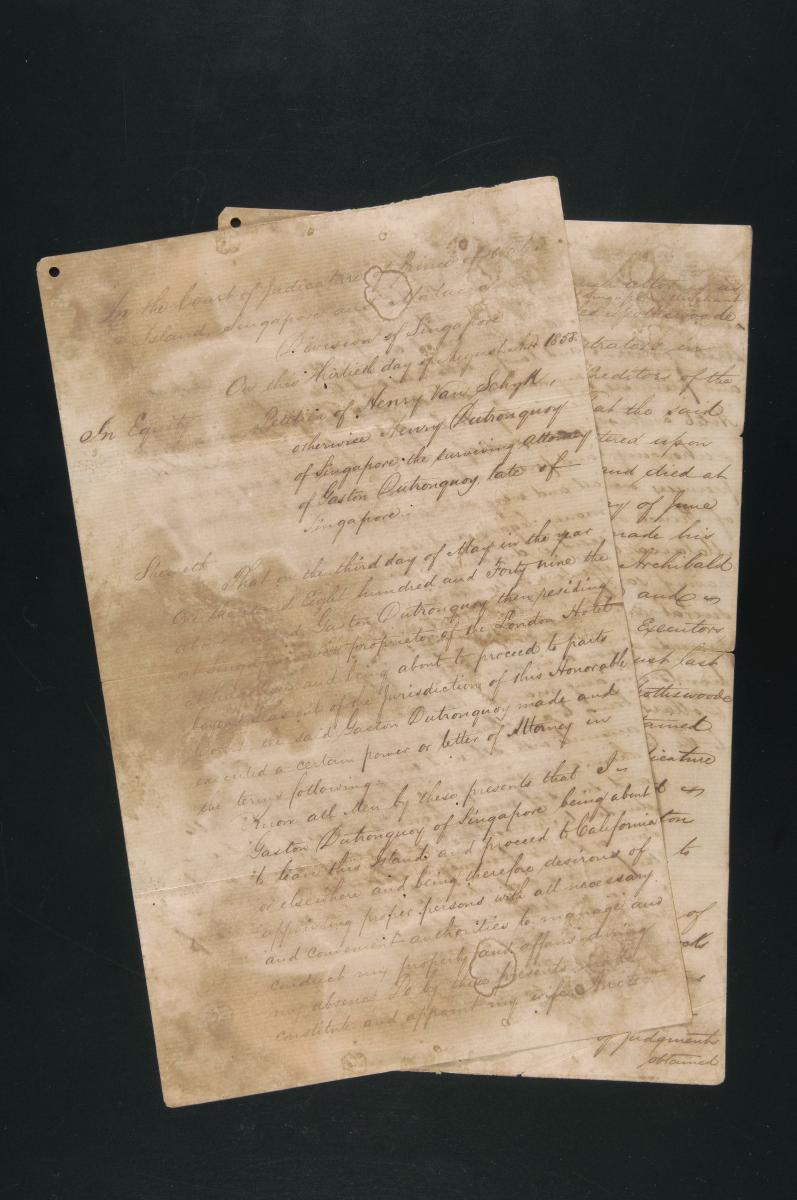 In the Court of Judicature of Prince of Wales
Island Singapore and Malacca
Division of Singapore
On this Thirtieth day of August A.D. 1858
In Equity
Petition of Henry Van Schyk,
otherwise Henry Dutronquoy
of Singapore the surviving attorney
of Gaston Dutronquoy late of
Singapore.
Sheweth
That on the third day of May in the year
One thousand Eight hundred and Forty nine the
Gaston Dutronquoy then residing
proprietor of the London Hotel
and being about to proceed to parts
beyond Seas out of the Jurisdiction of this Honorable
Court the said Gaston Dutronquoy made and
executed a certain power or letter of Attorney in
the terms following.
Know all Men by these presents that I
Gaston Dutronquoy of Singapore being about
to leave this Island and proceed to California
or elsewhere and being therefore desirous of
appointing proper persons with all necessary
and convenient authorities to manage and
conduct my property and affairs during
my absence Do by these presents make
constitute and appoint my wife
Singapore
ed Spottiswoode
in
Creditors of the
at the said
upon
and died at
of June
made his
Archibald
and
Executors
last
ottiswoode
to
of
of Judgments
obtained